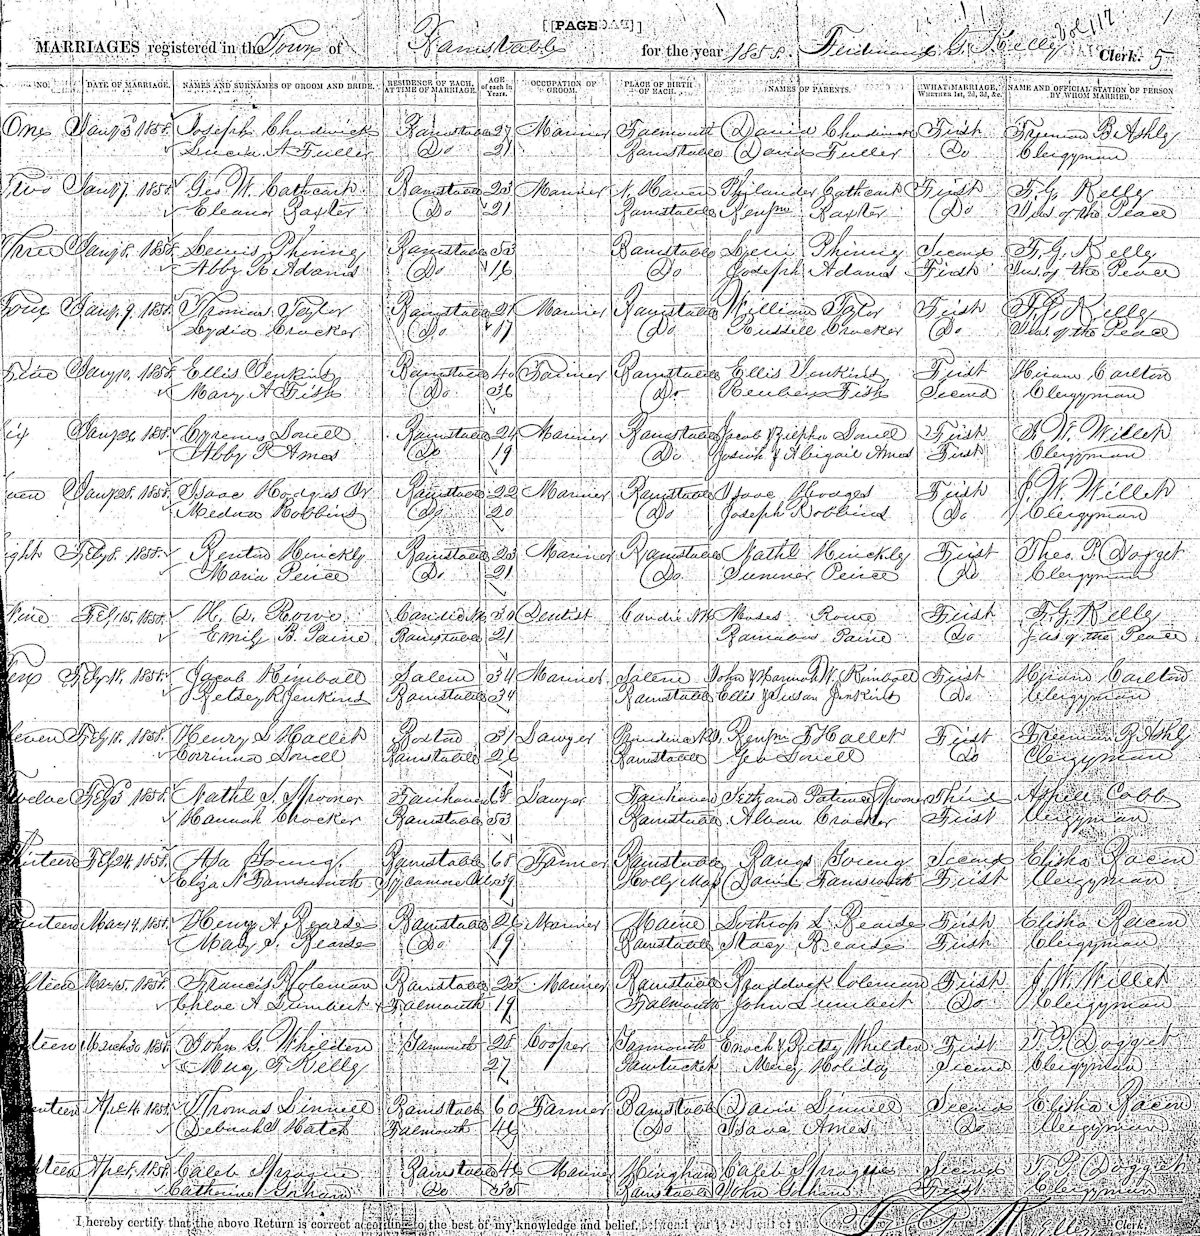 [PAGE]
Vol 117
MARRIAGES registered in the Town of Barnstable for the year 1858. Ferdinand G. Kelly Clerk. 5
NO. DATE OF MARRIAGE. NAMES AND SURNAMES OF GROOM AND BRIDE. RESIDENCE OF EACH, AT TIME OF MARRIAGE. AGE of each in Years. OCCUPATION OF GROOM. PLACE OF BIRTH OF EACH. NAMES OF PARENTS. WHAT MARRIAGE, Whether 1st, 2d, 3d, &c. NAME AND OFFICIAL STATION OF PERSON BY WHOM MARRIED.
One Jany 3 1858 Joseph Chadwick Barnstable 27 Mariner Falmouth David Chadwick First Freeman B Ashly
Lucia A Fuller Do 21 Barnstable David Fuller Do Clergyman
Two Jany 7. 1858 Geo W. Cathcart Barnstable 23 Mariner N. Haven Philander Cathcart First F. G. Kelly
Eleanor Baxter Do 21 Barnstable Benjm Baxter Do Jus of the Peace
Three Jany 8. 1858 Lewis Phinny Barnstable 53 Barnstable Phinny Second F. G. Kelly
Abby Adams Do 16 Do Joseph Adams First Jus. of the Peace
Four Jany 9. 1858 Thomas Taylor Barnstable 21 Mariner Barnstable William Taylor First F. G. Kelly
Lydia Crocker Do 17 Do Russell Crocker Do Jus of the Peace
Five Jany 10, 1858 Ellis Jenkins Barnstable 40 Farmer Barnstable Ellis Jenkins First Hiram Carlton
Mary A Fish Do 36 Do Reuben Fish Second Clergyman
Six Jany 26 1858 Cyrenus Lovell Barnstable 24 Mariner Barnstable Jacob & Lovell First W. Willet
Abby P. Ames Do 19 Do Josiah & Abigail Ames First Clergyman
Seven Jany 28. 1858 Isaac Hodges Jr Barnstable 22 Mariner Barnstable Isaac Hodges First J. W. Willet
Robbins Do 20 Do Joseph Robbins Do Clergyman
Eight Feby 8. 1858 Hinckly Barnstable 23 Mariner Barnstable Nathl Hinckly First Theo. P. Dogget
Maria Peirce Do 21 Do Sumner Peirce Do Clergyman
Nine Feby 15. 1858 Rowe Candia N.H. 30 Dentist Candia N.H. Moses Rowe First F. G. Kelly
Emily B. Paine Barnstable 21 Barnabas Paine Do Jus of the Peace
Ten Feby 18, 1858 Jacob Kimball Salem 34 Mariner Salem John & Hannah W. Kimball First Hiram Carlton
Betsey R. Jenkins Barnstable 34 Barnstable Ellis & Susan Jenkins Do Clergyman
Eleven Feby 18. 1858 Henry L Hallet Boston 31 Lawyer Providence R.I. Benjm F Hallet First Freeman B Ashly
Corrinna Lovell Barnstable 26 Barnstable Geo Lovell Do Clergyman
Twelve Feby 3 1858 Nathl S. Spooner Fairhaven Lawyer Fairhaven Seth and Patience Spooner Third Cobb
Hannah Crocker Barnstable 53 Barnstable Alvan Crocker First Clergyman
Thirteen Feby 24. 1858 Asa Young Barnstable 68 Farmer Barnstable Bangs Young Second Elisha Bacon
Eliza N Farnsworth Sycamore 39 David Farnsworth First Clergyman
Fourteen Mar 14. 1858 Henry A Bearse Barnstable 26 Mariner Maine Lothrop L Bearse First Elisha Bacon
Mary S. Bearse Do 19 Barnstable Bearse First Clergyman
Fifteen Mar 15. 1858 Francis Coleman Barnstable 23 Mariner Barnstable Coleman First J. W. Willet
Chloe A Lumbert Falmouth 19 Falmouth John Lumbert Do Clergyman
Sixteen March 30 1858 John G. Whelden Yarmouth 28 Cooper Yarmouth Enoch & Betsy Whelden First T P. Dogget
F Kelly 27 Pawtucket Holiday Second Clergyman
Seventeen Apl 4. 1858 Thomas Linnell Barnstable 60 Farmer Barnstable David Linnell Second Elisha Bacon
Deborah S Hatch Falmouth 46 Do Ames Do Clergyman
Eighteen Apl 8. 1858 Caleb Sprague Barnstable 46 Mariner Hingham Caleb Sprague Second T. P. Dogget
Catherine Gorham Do 35 Barnstable John Gorham First Clergyman
I hereby certify that the above Return is correct according to the best of my knowledge and belief. F. G. Kelly Clerk.